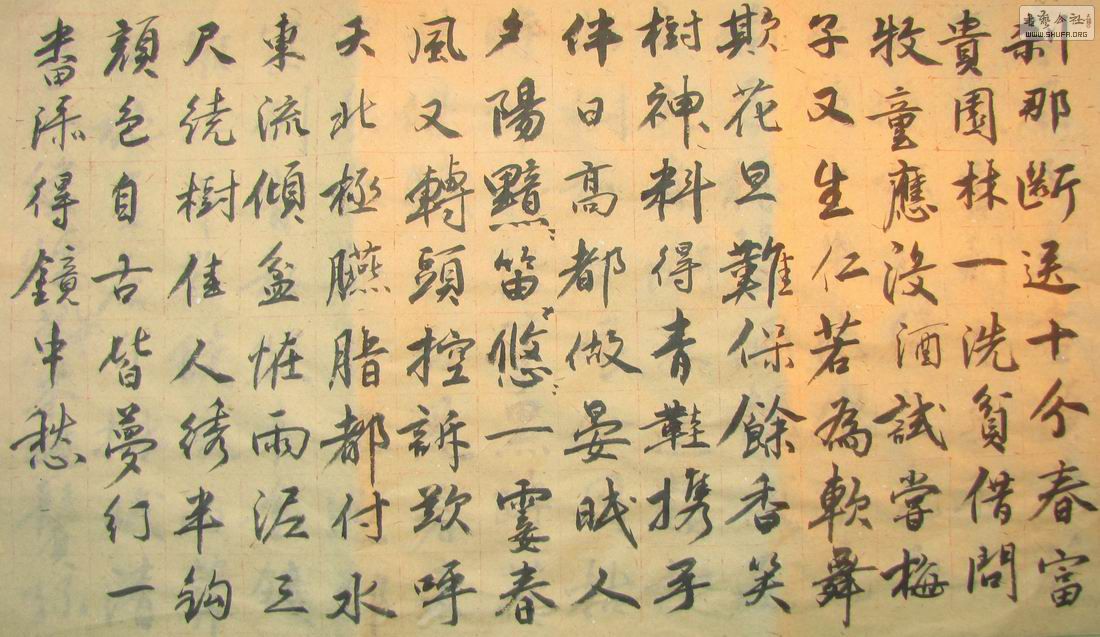 刹那斷送十分春富
貴園林一洗貧借問
牧童應没酒試嘗梅
子又生仁若為軟舞
欺花旦難保餘香笑
樹神料得青鞋携手
伴日高都做晏眠人
夕陽黯々笛悠々一霎春
風又轉頭控訴欲呼
天北極臙脂都付水
東流傾盆恠雨泥三
尺繞樹佳人綉半鈎
顔色自古皆夢幻一
番添得鏡中愁
書藝公社
WWW.SHUFA.ORG